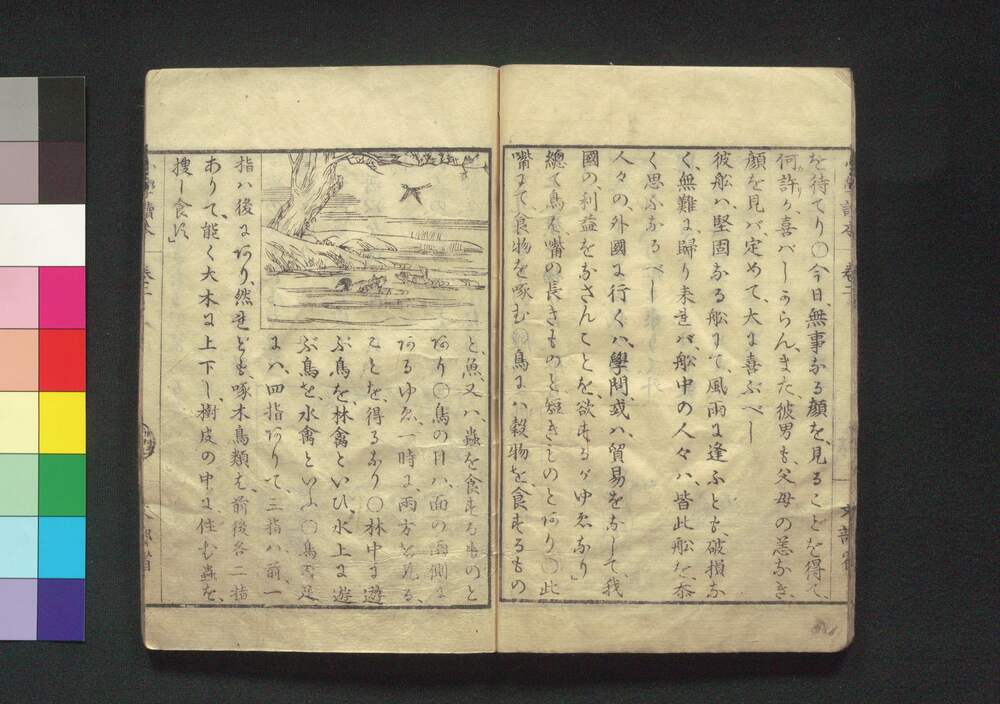 を待てり〇今日、無事なる顔を、見ることを得て、
何許りか喜バしからん、また彼男も、父母の恙なき、
顔を見バ、定めて、大に喜ぶべし
彼舩ハ、堅固なる舩にて、風雨に逢ふとも、破損な
く、無難に、歸り来れバ、舩中の人々ハ、皆此舩を、忝
く思ふなるべし
人々の外國に行くハ、學問、或ハ、貿易をなして、我
國の、利益をなさんことを、欲するがゆゑなり」
總て鳥ハ、嘴の長きものと短きものとあり〇此
嘴にて食物を啄む〇鳥にハ穀物を、食するもの
と、魚、又ハ、蟲を食するものと
あり〇鳥の目ハ、面の両側に
あるゆゑ、一時に両方を見る、
ことを、得るなり〇林中に遊
ぶ鳥を、林禽といひ、水上に遊
ぶ鳥を、水禽といふ〇鳥の足
にハ、四指ありて、三指ハ、前、一
指ハ後にあり、然れども、啄木鳥類ハ、前後各二指
ありて、能く大木に上下し、樹皮の中に住む蟲を、
捜し食ふ」
小學讀本 巻二
文部省